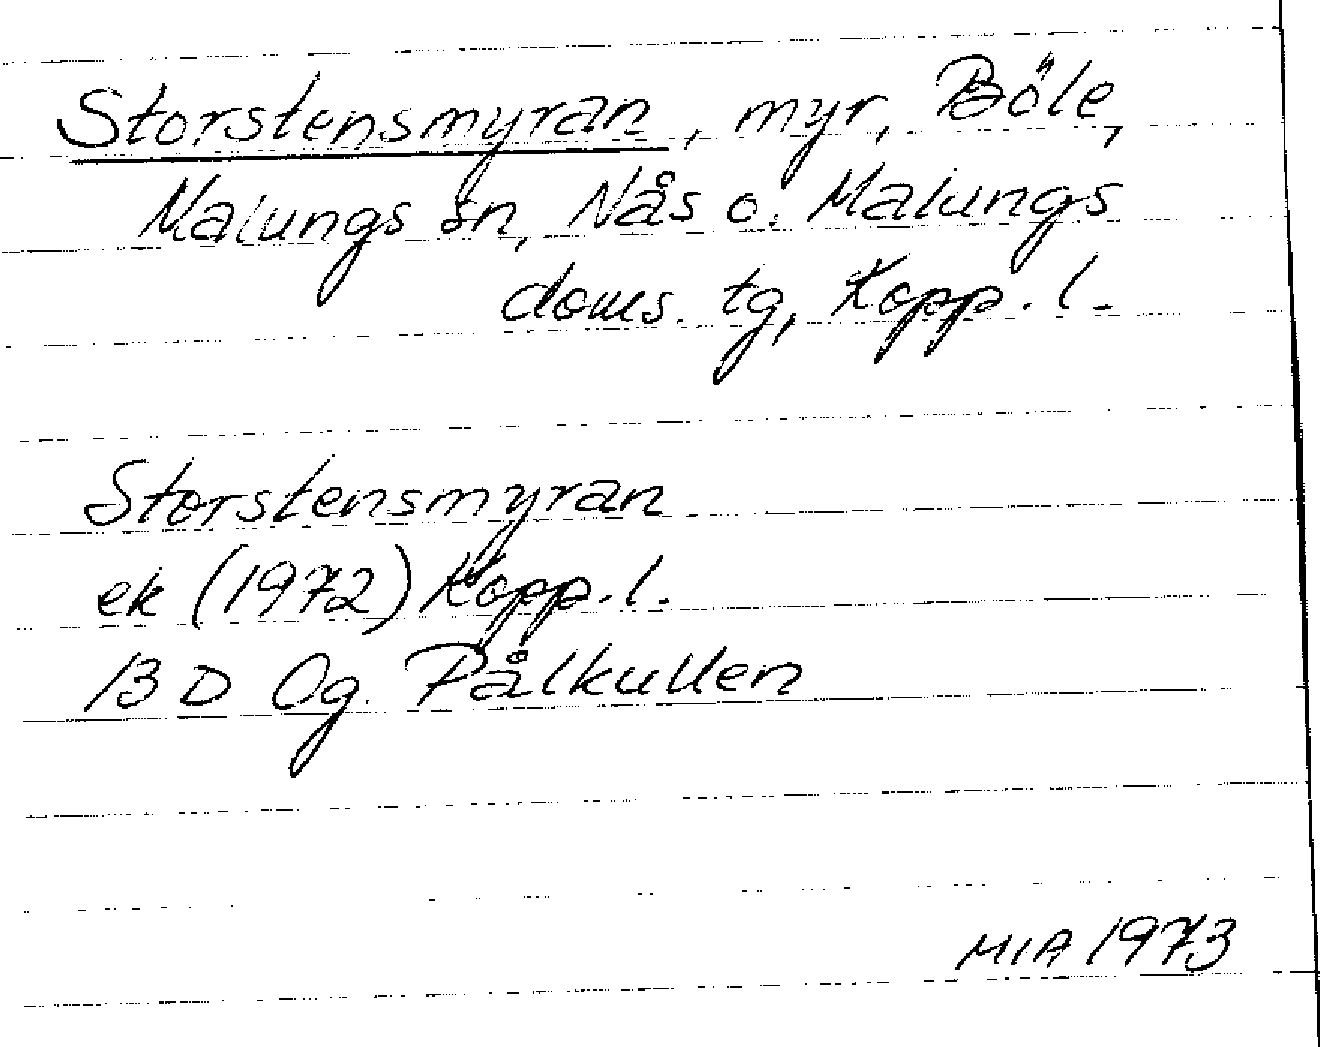 Storstensmyran, myr, Böle,
Malungs sn, Nås o. Malungs
doms. tg, Kopp. l.
Storstensmyran
ek (1972) Kopp. l.
13 D Og. Pålkullen
MIA 1973